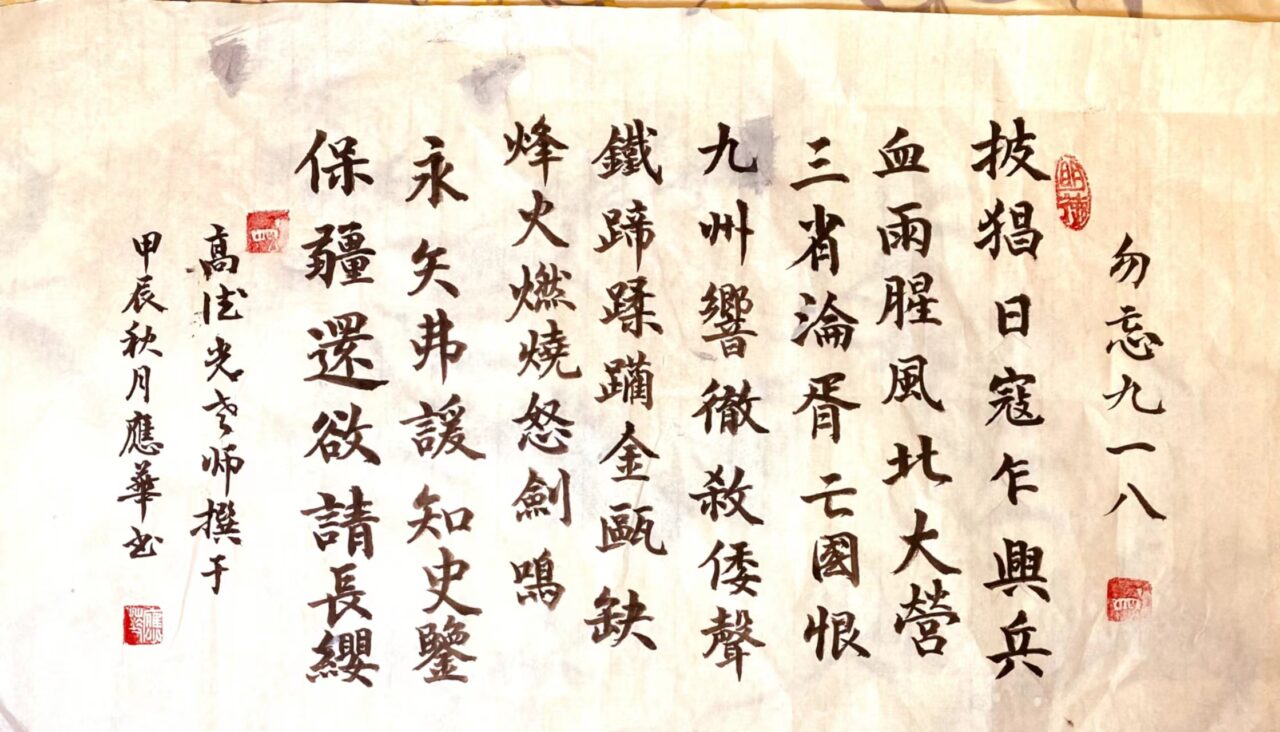 勿忘九一八
披猖日寇乍興兵
血雨腥風北大營
三省淪胥亡國恨
九州響徹殺倭聲
鐵蹄蹂躪金甌缺
烽火燃燒怒劍鳴
永矢弗諼知史鑒
保疆還欲請長纓
高德光老师撰于
甲辰秋月應華书